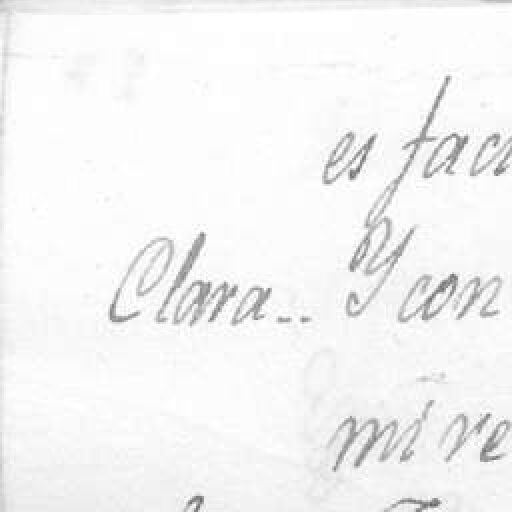 es faci
Clara.. Y con
mi re